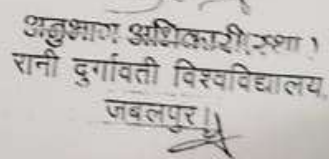 अनुभाग अधिकारी(स्था)
रानी दुर्गावती विश्वविद्यालय,
जबलपुर।